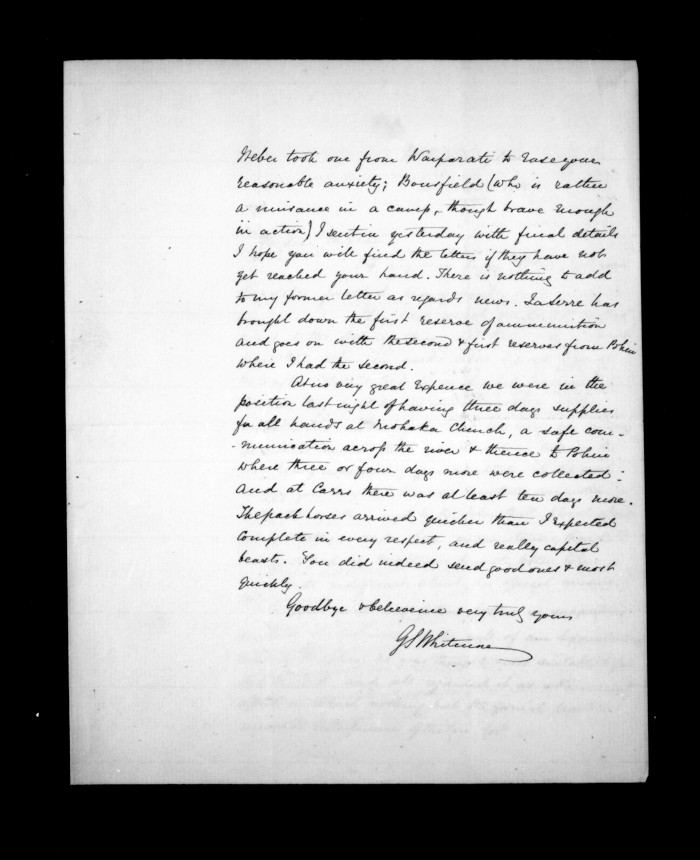 Weber took one from Waiparati to ease your
reasonable anxiety; Bousfield (who is rather
a nuisance in a camp, though brave enough
in action) I sent in yesterday with final details
I hope you will find the letters if they have not
yet reached your hand. There is nothing to add
to my former letter as regards news. LaSerre has
brought down the first reserve of ammunition
and goes on with the second & first reserves from Pohui
where I had the second.
At no very great expence we were in the
position last night of having three days supplies
for all hands at Mohaka Church, a safe com-
-munication across the river & thence to Pohui
where three or four days more were collected:
and at Carrs there was at least ten days more.
The pack horses arrived quicker than I expected
complete in every respect, and really capital
beasts. You did indeed send good ones & most
quickly.
Goodbye & believe me very truly yours
GSWhitmore